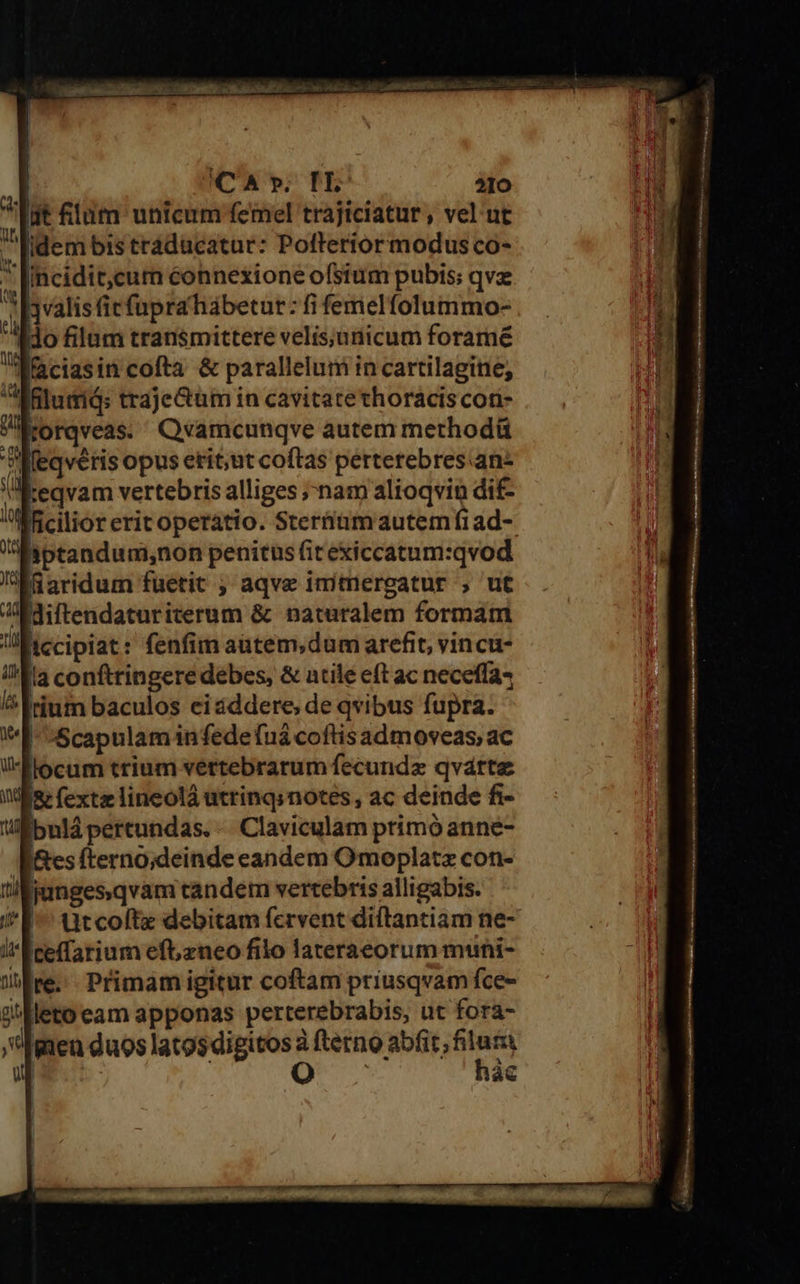 CAP. II. 210
ut filum unicum semel trajiciatur, vel ut
idem bis traducatur: Posterior modus co-
incidit, cum connexione ofsium pubis; qvæ
qvalis sit supra habetur: si semel solummo-
do filum transmittere velis, unicum foramē
facias in costa & parallelum in cartilagine,
filumq; trajectum in cavitate thoracis con-
torqveas. Qvamcunqve autem methodū
seqvéris opus erit, ut costas perterebres an-
teqvam vertebris alliges; nam alioqvin dif-
ficilior erit operatio. Sternum autem si ad-
aptandum, non penitus sit exiccatum: qvod
si aridum fuerit, aqvæ immergatur, ut
distendatur iterum & naturalem formam
accipiat: sensim autem, dum arefit, vincu-
la constringere debes, & utile est ac necessa-
rium baculos ei addere, de qvibus supra.
Scapulam in sede suâ costis admoveas, ac
locum trium vertebrarum secundæ qvartæ
& sextæ lineolâ utrinq; notes, ac deinde fi-
bulâ pertundas. Claviculam primò anne-
ctes sterno, deinde eandem Omoplatæ con-
junges, qvam tandem vertebris alligabis.
Ut costæ debitam servent distantiam ne-
cessarium est, æneo filo latera eorum muni-
re. Primam igitur costam priusqvam sce-
leto eam apponas perterebrabis, ut fora-
men duos latos digitos à sterno absit, filum
O hâc